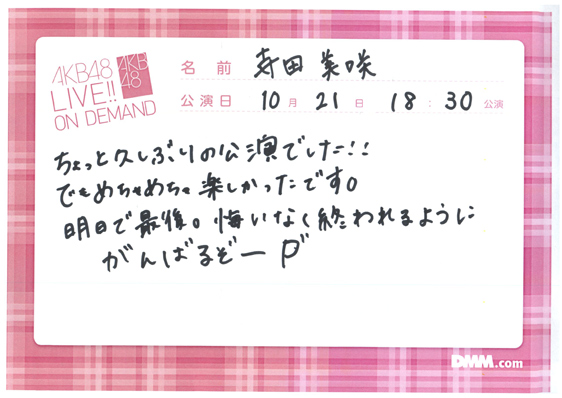 AKB48
LIVE!!
ON DEMAND
AKB
48
名前 寺田 美咲
公演日 10月21日 18:30公演
ちょっと久しぶりの公演でした!!
でもめちゃめちゃ楽しかったです。
明日で最後。悔いなく終われるように
がんばるぞー
DMM.com